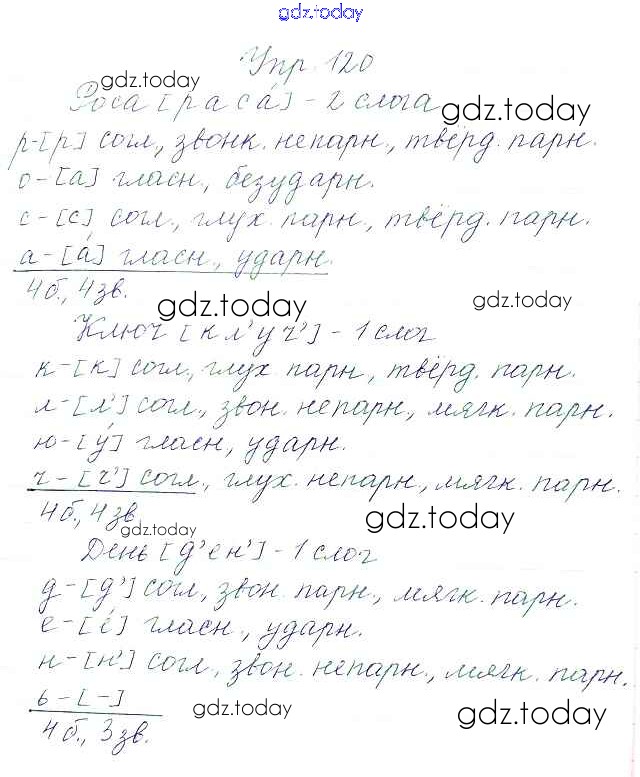 gdz.today
Упр. 120
gdz.today
Роса [р а с а́] - 2 слога gdz.today
р-[р] согл., звонк. непарн., твёрд. парн.
о-[а] гласн., безударн.
с-[с] согл., глух. парн., твёрд. парн.
а-[а́] гласн., ударн.
4б., 4 зв. gdz.today gdz.today
Ключ [к л' у ч'] - 1 слог
к-[к] согл., глух. парн., твёрд. парн.
л-[л'] согл., звон. непарн., мягк. парн.
ю-[у́] гласн., ударн.
ч-[ч'] согл., глух. непарн., мягк. парн.
4б., 4 зв. gdz.today gdz.today
День [д' е н'] - 1 слог
д-[д'] согл., звон. парн., мягк. парн.
е-[е́] гласн., ударн.
н-[н'] согл., звон. непарн., мягк. парн.
ь-[-]
4 б., 3 зв. gdz.today gdz.today